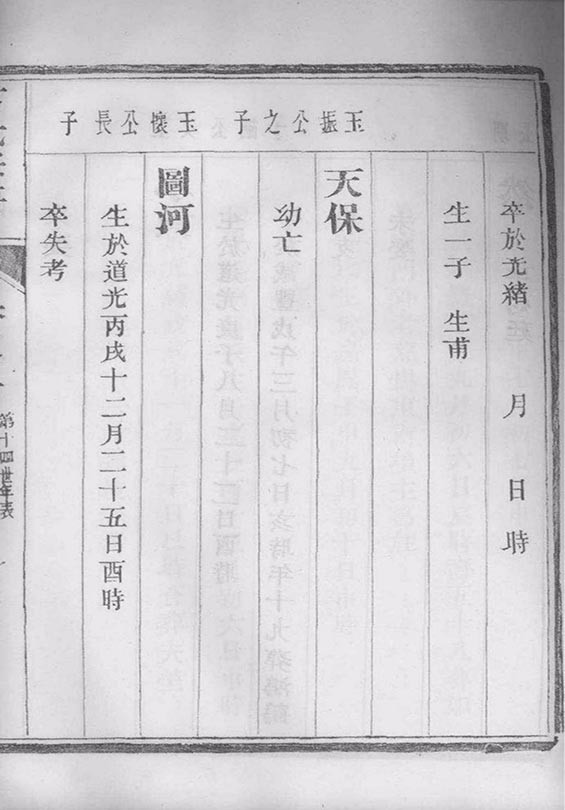 卒於光緒 月 日 時
生一子 生甫
玉振公之子
天保
幼亡
玉懷公長子
圖河
生於道光丙戌十二月二十五日酉時
卒失考
第十四世年表